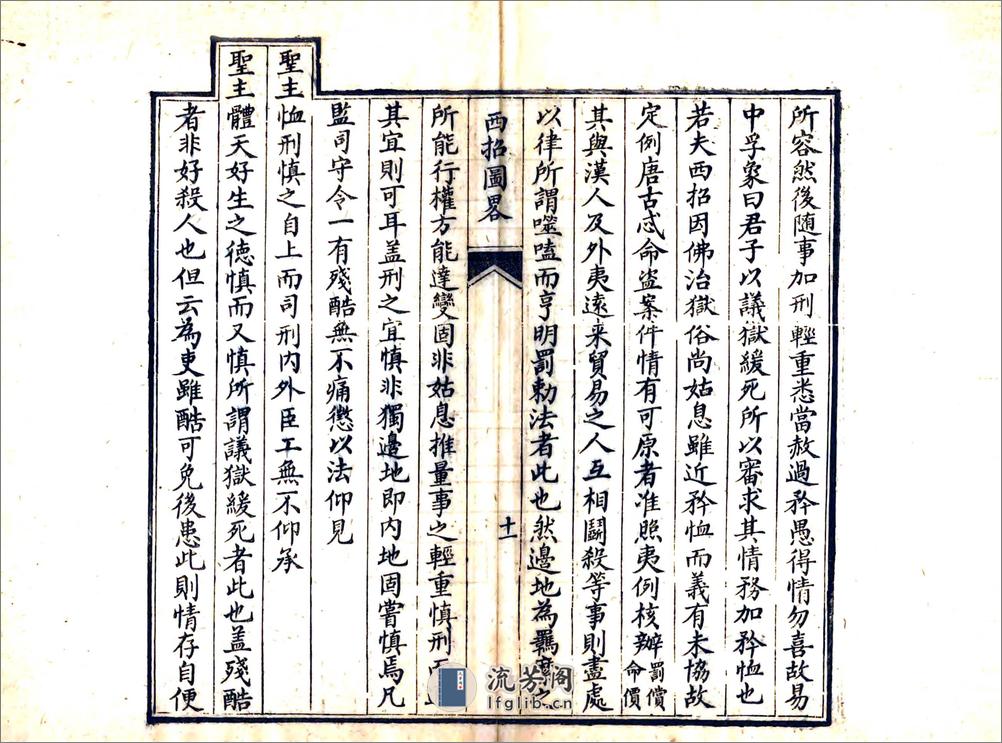 所容然後随事加刑輕重悉當赦過矜愚得情勿喜故易
中孚象曰君子以議獄緩死所以審求其情務加矜恤也
若夫西招因佛治獄俗尚姑息雖近矜恤而義有未協故
定例唐古忒命盜案件情有可原者准照夷例核辦罰償命價
其與漢人及外夷遠来貿易之人互相鬬殺等事則盡處
以律所謂噬嗑而亨明罰勅法者此也然邊地為羈縻之
西招圖畧
十一
所能行權方能達變固非姑息推量事之輕重慎刑而
其宜則可耳盖刑之宜慎非獨邊地即内地固嘗慎焉凡
監司守令一有殘酷無不痛懲以法仰見
聖主恤刑慎之自上而司刑内外臣工無不仰承
聖主體天好生之德慎而又慎所謂議獄緩死者此也盖殘酷
者非好殺人也但云為吏雖酷可免後患此則情存自便
流芳閣
lfglib.cn